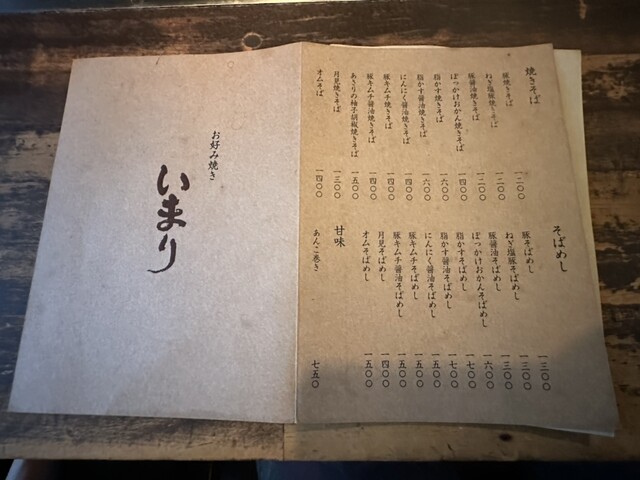 焼きそば
豚焼きそば 一二〇〇
ねぎ塩豚焼きそば 一二〇〇
豚醤油焼きそば 一二〇〇
ぼっかけおかん焼きそば 一四〇〇
脂かす焼きそば 一六〇〇
脂かす醤油焼きそば 一六〇〇
にんにく醤油焼きそば 一四〇〇
豚キムチ焼きそば 一四〇〇
豚キムチ醤油焼きそば 一四〇〇
あさりの柚子胡椒焼きそば 一五〇〇
月見焼きそば 一三〇〇
オムそば 一四〇〇
そばめし
豚そばめし 一三〇〇
ねぎ塩豚そばめし 一三〇〇
豚醤油そばめし 一三〇〇
ぼっかけおかんそばめし 一六〇〇
脂かすそばめし 一七〇〇
脂かす醤油そばめし 一七〇〇
にんにく醤油そばめし 一五〇〇
豚キムチそばめし 一五〇〇
豚キムチ醤油そばめし 一五〇〇
月見そばめし 一四〇〇
オムそばめし 一五〇〇
甘味
あんこ巻き 七五〇
お好み焼き
いまり